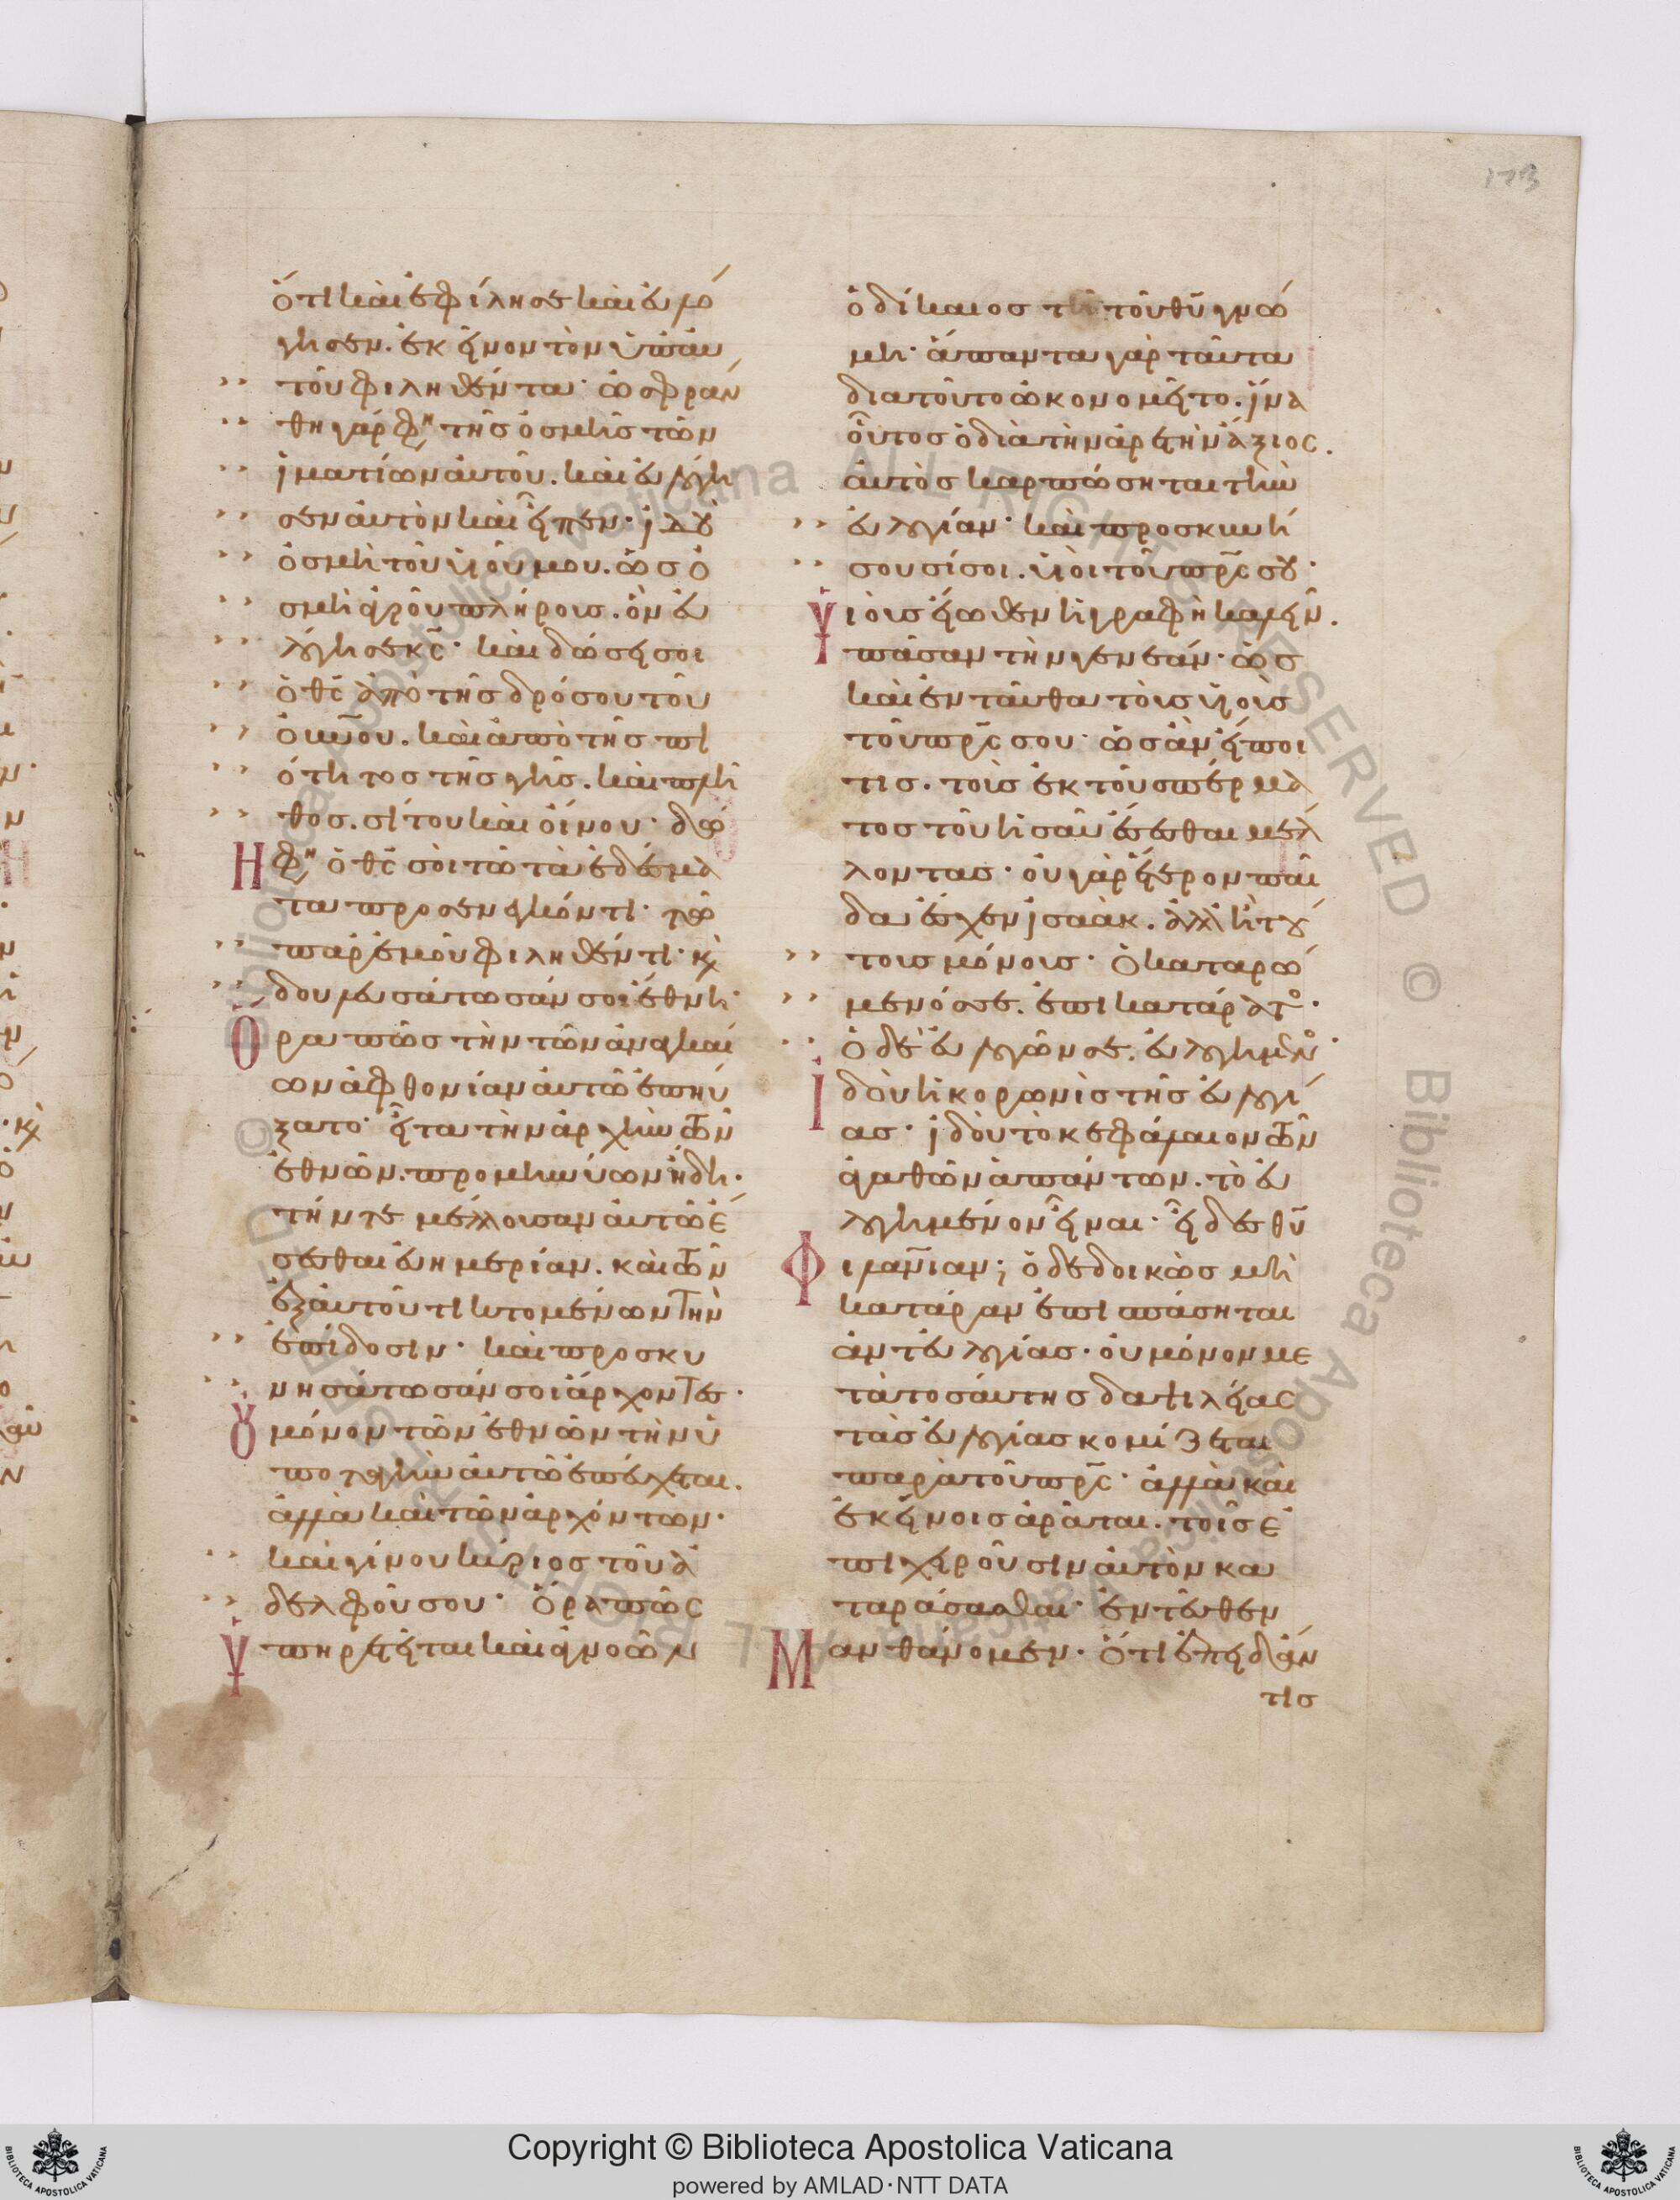 173
ὅτι καὶ ἐφίλησε καὶ εὐλό
γησεν. ἐκεῖνον τὸν ὑπ' αὐ
τοῦ φιληθέντα· ὠσφράν
θη γάρ φη τῆς ὀσμῆς τῶν
ἱματίων αὐτοῦ. καὶ εὐλόγη
σεν αὐτὸν καὶ εἶπεν· ἰδοὺ
ὀσμὴ τοῦ υἱοῦ μου. ὡς ὀ
σμὴ ἀγροῦ πλήρους. ὃν εὐ
λόγησε κς· καὶ δώσει σοι
ὁ θς ἀπὸ τῆς δρόσου τοῦ
οὐνου. καὶ ἀπὸ τῆς πι
ότητος τῆς γῆς. καὶ πλῆ
θος. σίτου καὶ οἴνου· δῴ
η φη ὁ θς σοι τῶ τὰ ἐδέσμα
τα προσενεγκόντι· τῶ
παρ' ἐμοῦ φιληθέντι· κὶ
δουλευσάτωσάν σοι ἔθνη·
Ὅρα πῶς τὴν τῶν ἀναγκαί
ων ἀφθονίαν αὐτῶ ἐπηύ
ξατο· εἶτα τὴν ἀρχὴν τῶν
ἐθνῶν. προμηνύων ἤδη·
τήν τε μέλλουσαν αὐτῶ ἔ
σεσθαι εὐημερίαν. καὶ τῶν
ἐξ αὐτοῦ τικτομένων τὴν
ἐπίδοσιν· καὶ προσκυ
νησάτωσάν σοι ἄρχοντες·
Οὐ μόνον τῶν ἐθνῶν τὴν ὑ
ποταγὴν αὐτῶ ἐπεύχεται.
ἀλλὰ καὶ τῶν ἀρχόντων·
καὶ γίνου κύριος τοῦ ἀ
δελφοῦ σου· Ὅρα πῶς
ὑπηρετεῖται καὶ ἀγνοῶν
ὁ δίκαιος τῆ τοῦ θυ γνώ
μη· ἅπαντα γὰρ ταῦτα
διὰ τοῦτο ὠκονομεῖτο. ἵνα
οὗτος ὁ διὰ τὴν ἀρετὴν ἄξιος.
αὐτὸς καρπώσηται τὴν
εὐλογίαν· καὶ προσκυνή
σουσί σοι. υἱοὶ τοῦ πρς σου·
Υἱοὺς εἴωθεν ἡ γραφὴ καλεῖν.
πᾶσαν τὴν γενεάν· ὡς
καὶ ἐνταῦθα τοὺς υἱοὺς
τοῦ πρς σου· ὡς ἂν εἴποι
τις. τοὺς ἐκ τοῦ σπέρμα
τος τοῦ ἡσαῦ ἔσεσθαι μέλ
λοντας· οὐ γὰρ ἕτερον παῖ
δα ἔσχεν ἰσαὰκ. ἀλλ' ἢ τού
τους μόνους· Ὁ καταρώ
μενός σε. ἐπικατάρατο·
ὁ δὲ εὐλογῶν σε. εὐλογημένο·
Ἰδοὺ ἡ κορωνὶς τῆς εὐλογί
ας· ἰδοὺ τὸ κεφάλαιον τῶν
ἀγαθῶν ἁπάντων. τὸ εὐ
λογημένον εἶναι· εἶδες θυ
φιλανιαν; ὁ δεδοικὼς μὴ
κατάραν ἐπισπάσηται
ἀντ' εὐλογίας· οὐ μόνον με
τὰ τοσαύτης δαψιλείας
τὰς εὐλογίας κομίζεται
παρὰ τοῦ πρς· ἀλλὰ καὶ
ἐκείνοις ἀρᾶται. τοῖς ἐ
πιχειροῦσιν αὐτὸν κα
ταράσασθαι· ἐντεῦθεν
Μανθάνομεν. ὅτι ἐπειδάν
τις